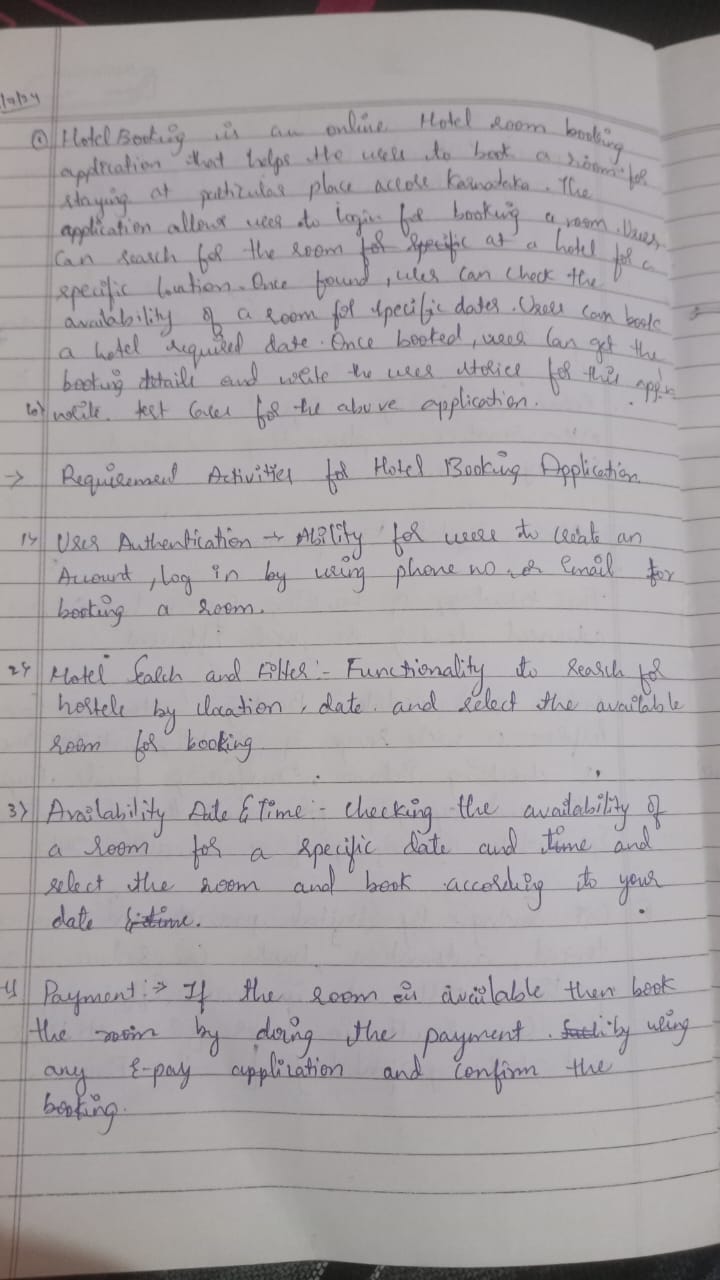 a) Hotel Booking is an online Hotel room booking
application that helps the user to book a room for
staying at particular place across Karnataka. The
application allows user to login for booking a room. User
Can search for the room for specific at a hotel for a
specific location. Once found, user can check the
availability of a room for specific dates. User can book
a hotel required date. Once booked, user can get the
booking details and write the user stories for this appn
b) write test cases for the above application.
→ Requirement Activities for Hotel Booking Application
1) User Authentication → Ability for user to create an
Account, log in by using phone no or Email for
booking a room.
2) Hotel Search and Filter :- Functionality to search for
hostels by location, date and select the available
room for booking
3) Availability Date & Time :- checking the availability of
a room for a specific date and time and
select the room and book according to your
date & time.
4) Payment :→ If the room is available then book
the room by doing the payment. by using
any E-pay application and confirm the
booking.